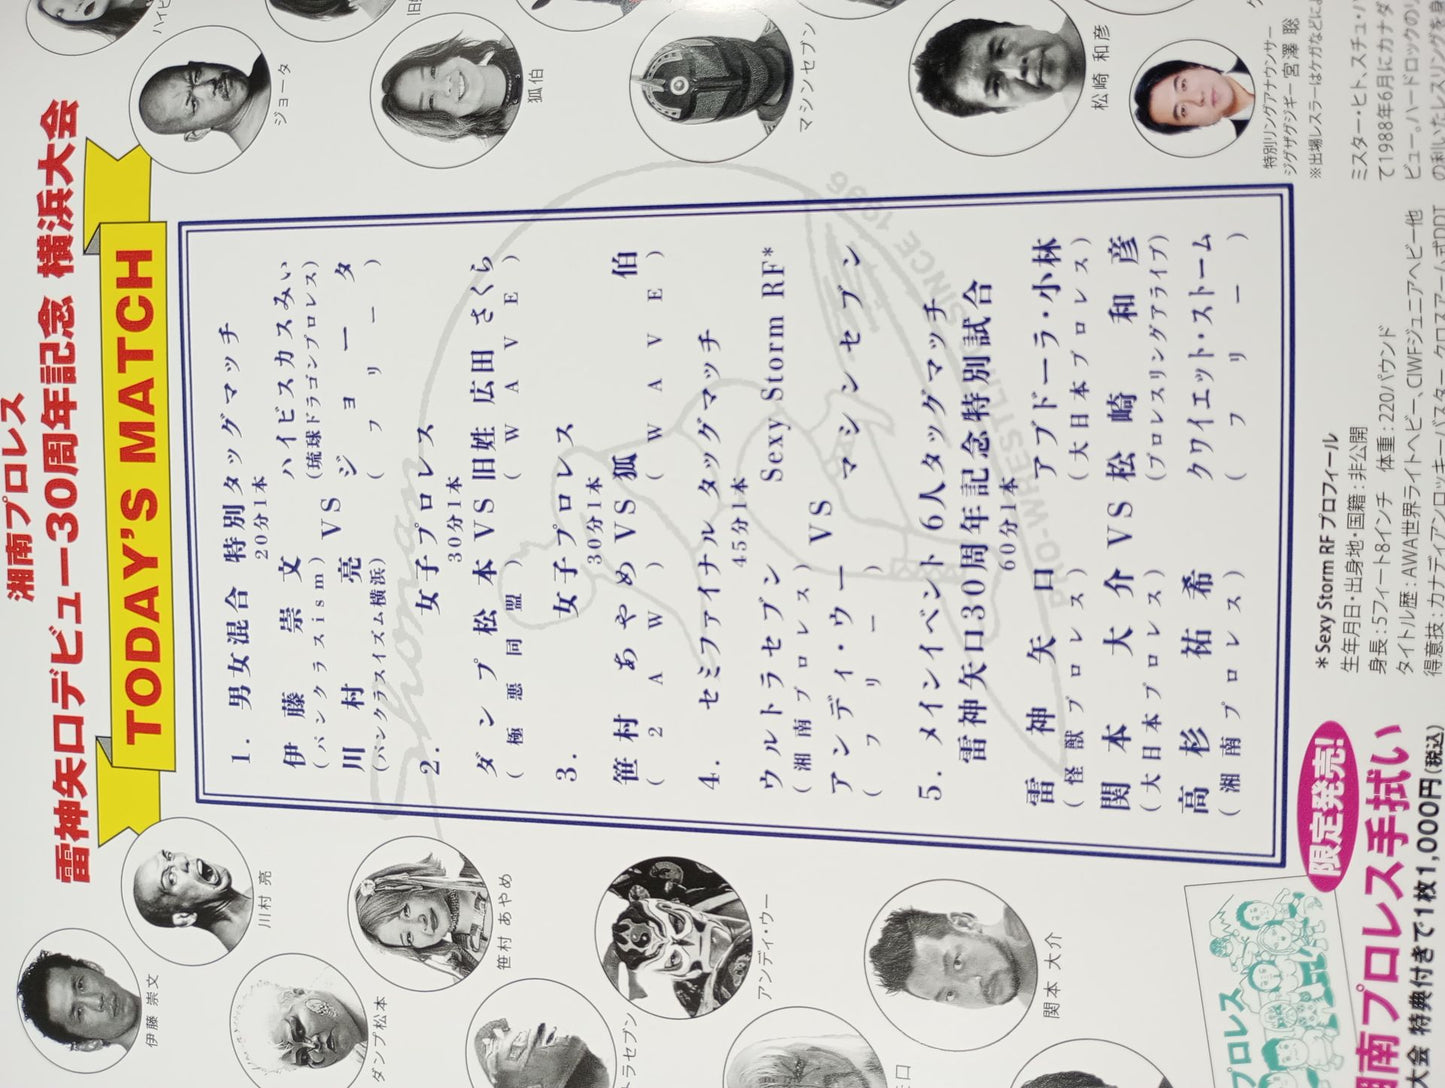 湘南プロレス
雷神矢口デビュー30周年記念 横浜大会
TODAY'S MATCH
1. 男女混合 特別タッグマッチ
20分1本
伊藤 崇文 ハイビスカスみぃ
(パンクラスism) (琉球ドラゴンプロレス)
VS
川村 亮 ジョータ
(パンクラスイズム横浜) (フリー)
2. 女子プロレス
30分1本
ダンプ松本 VS 旧姓 広田 さくら
(極悪同盟) (WAVE)
3. 女子プロレス
30分1本
笹村 あやめ VS 狐伯
(2AW) (WAVE)
4. セミファイナル タッグマッチ
45分1本
ウルトラセブン Sexy Storm RF*
(湘南プロレス)
VS
アンディ・ウー マシンセブン
(フリー)
5. メインイベント 6人タッグマッチ
雷神矢口30周年記念特別試合
60分1本
雷神 矢口 アブドーラ・小林
(怪獣プロレス) (大日本プロレス)
関本 大介 VS 松崎 和彦
(大日本プロレス) (プロレスリングアライブ)
高杉 祐希 クワイエット・ストーム
(湘南プロレス) (フリー)
PRO-WRESTLING SINCE 1996
Shonan
伊藤 崇文
川村 亮
ダンプ松本
笹村 あやめ
トラセブン
アンディ・ウー
矢口
関本 大介
ハイビ
ジョータ
旧姓
狐伯
マシンセブン
松崎 和彦
特別リングアナウンサー
ジグザグジギー 宮澤 聡
※出場レスラーはケガなどによ
*Sexy Storm RF プロフィール
生年月日・出身地・国籍：非公開
身長：5フィート8インチ 体重：220パウンド
タイトル歴：AWA世界ライトヘビー、CIWFジュニアヘビー他
得意技：カナディアンロッキーバスター クロスアーム式DDT
ミスター・ヒト、スチュ・ハ
て1988年6月にカナダ
ビュー。ハードロックのリ
の利いたレスリングを身
限定発売!
湘南プロレス手拭い
大会 特典付きで1枚1,000円(税込)
プロレス